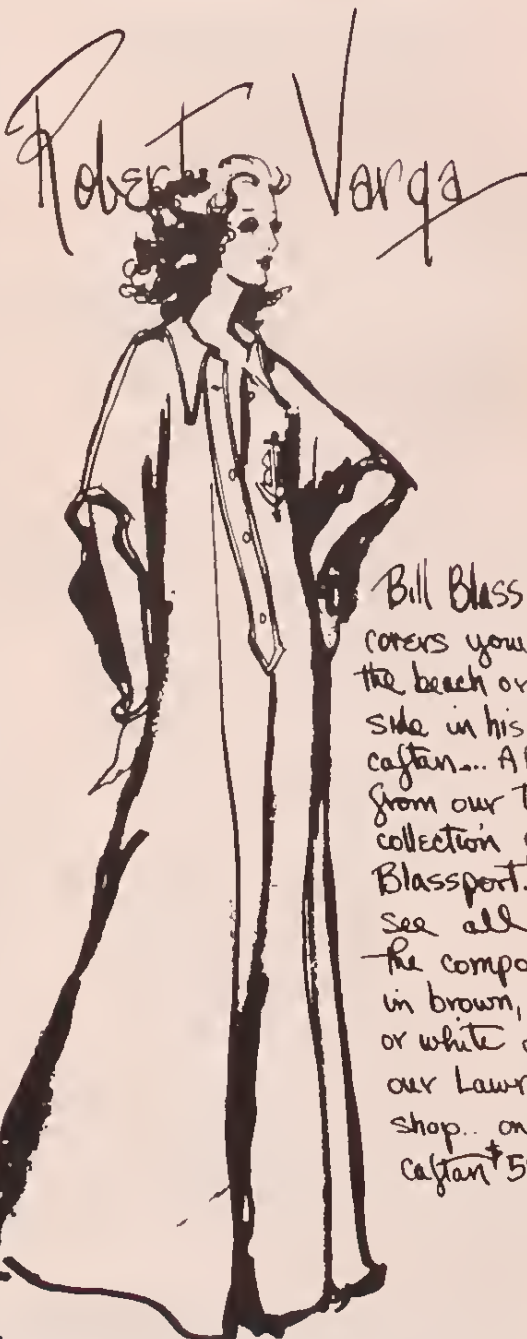 Robert Varga
Bill Blass
covers your
the beach or
side in his
caftan... A
from our
collection
Blassport.
see all
the compo
in brown,
or white
our Lawr
shop.. on
caftan $5